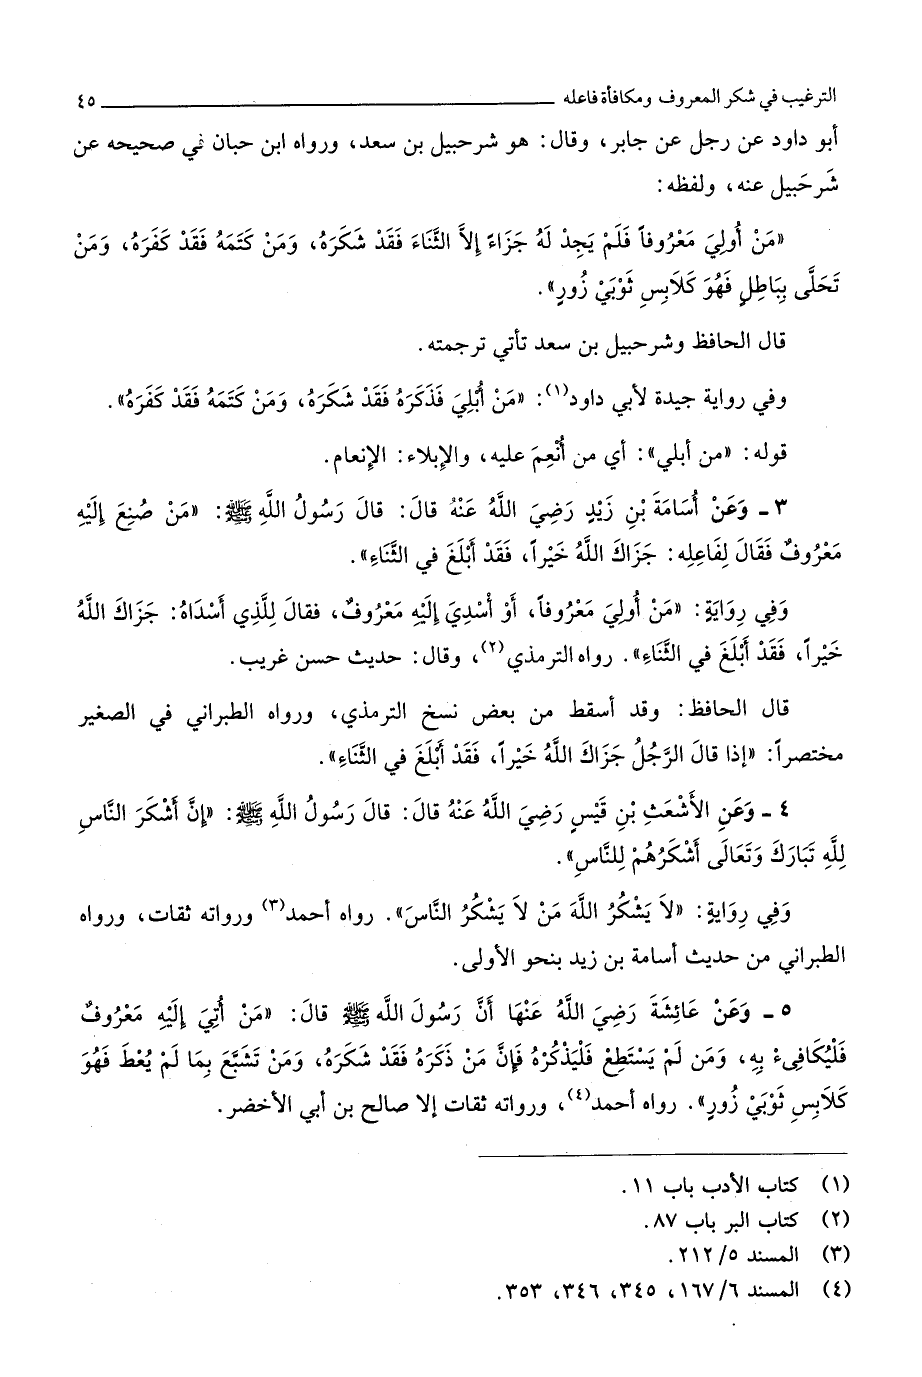 الترغيب في شكر المعروف ومكافأة فاعله ٤٥
أبو داود عن رجل عن جابر، وقال: هو شرحبيل بن سعد، ورواه ابن حبان في صحيحه عن
شَرحَبيل عنه، ولفظه:
«مَنْ أُولِيَ مَعْرُوفاً فَلَمْ يَجِدْ لَهُ جَزَاءً إِلاَّ الثَّنَاءَ فَقَدْ شَكَرَهُ، وَمَنْ كَتَمَهُ فَقَدْ كَفَرَهُ، وَمَنْ
تَحَلَّى بِبَاطِلٍ فَهُوَ كَلَابِسِ ثَوْبَيْ زُورٍ».
قال الحافظ وشرحبيل بن سعد تأتي ترجمته.
وفي رواية جيدة لأبي داود(١): «مَنْ أُبْلِيَ فَذَكَرَهُ فَقَدْ شَكَرَهُ، وَمَنْ كَتَمَهُ فَقَدْ كَفَرَهُ».
قوله: «من أبلي»: أي من أُنْعِمَ عليه، والإبلاء: الإنعام.
٣ ـ وَعَنْ أُسَامَةَ بْنِ زَيْدٍ رَضِيَ اللَّهُ عَنْهُ قالَ: قالَ رَسُولُ اللَّهِ ﷺ: «مَنْ صُنِعَ إِلَيْهِ
مَعْرُوفٌ فَقَالَ لِفَاعِلِهِ: جَزَاكَ اللَّهُ خَيْراً، فَقَدْ أَبْلَغَ في الثَّنَاءِ».
وَفِي رِوَايَةٍ: «مَنْ أُولِيَ مَعْرُوفاً، أَوْ أُسْدِيَ إِلَيْهِ مَعْرُوفٌ، فقالَ لِلَّذِي أَسْدَاهُ: جَزَاكَ اللَّهُ
خَيْراً، فَقَدْ أَبْلَغَ في الثَّنَاءِ». رواه الترمذي(٢)، وقال: حديث حسن غريب.
قال الحافظ: وقد أسقط من بعض نسخ الترمذي، ورواه الطبراني في الصغير
مختصراً: «إذا قالَ الرَّجُلُ جَزَاكَ اللَّهُ خَيْراً، فَقَدْ أَبْلَغَ في الثَّنَاءِ».
٤ ـ وَعَنِ الأَشْعَثِ بْنِ قَيْسٍ رَضِيَ اللَّهُ عَنْهُ قالَ: قالَ رَسُولُ اللَّهِ ﷺ: «إِنَّ أَشْكَرَ النَّاسِ
لِلَّهِ تَبَارَكَ وَتَعَالَى أَشْكَرُهُمْ لِلنَّاسِ».
وَفِي رِوَايَةٍ: «لاَ يَشْكُرُ اللَّهَ مَنْ لاَ يَشْكُرُ النَّاسَ». رواه أحمد(٣) ورواته ثقات، ورواه
الطبراني من حديث أسامة بن زيد بنحو الأولى.
٥ ـ وَعَنْ عَائِشَةَ رَضِيَ اللَّهُ عَنْهَا أَنَّ رَسُولَ اللَّه ﷺ قالَ: «مَنْ أُتِيَ إِلَيْهِ مَعْرُوفٌ
فَلْيُكَافِىءْ بِهِ، وَمَن لَمْ يَسْتَطِعْ فَلْيَذْكُرْهُ فَإِنَّ مَنْ ذَكَرَهُ فَقَدْ شَكَرَهُ، وَمَنْ تَشَبَّعَ بِمَا لَمْ يُعْطَ فَهُوَ
كَلَابِسِ ثَوْبَيْ زُورٍ». رواه أحمد(٤)، ورواته ثقات إلا صالح بن أبي الأخضر.
(١) كتاب الأدب باب ١١.
(٢) كتاب البر باب ٨٧.
(٣) المسند ٥/ ٢١٢.
(٤) المسند ٦/ ١٦٧، ٣٤٥، ٣٤٦، ٣٥٣.